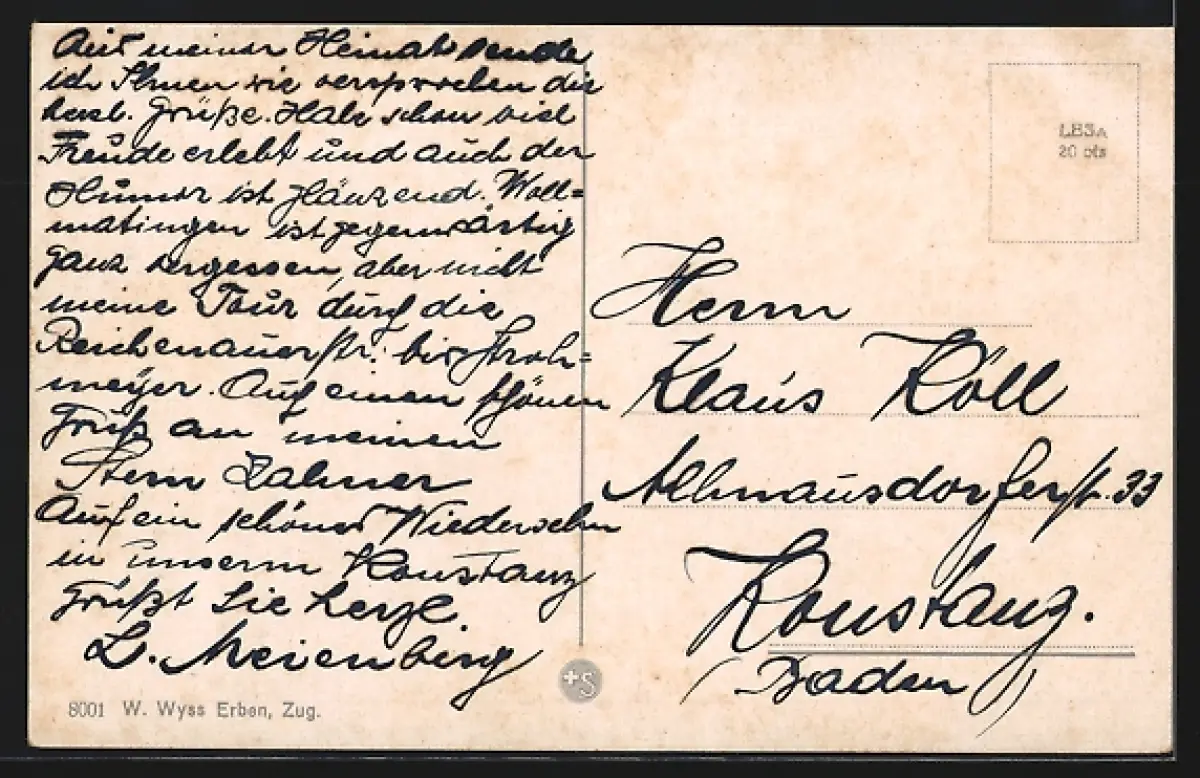 Aus meiner Heimat sende
ich Ihnen wie versprochen die
herzl. Grüße. Habe schon viel
Freude erlebt und auch der
Humor ist glänzend. Woll=
matingen ist gegenwärtig
ganz vergessen, aber nicht
meine Tour durch die
Reichenauerstr. bis Stroh=
meyer. Auf einen schönen
Gruß an meinen
Stern Zahner
Auf ein schönes Wiedersehn
in unserm Konstanz
grüßt Sie herzl.
L. Meienberg
8001 W. Wyss Erben, Zug.
+S
LB3A
20 cts
Herrn
Klaus Köll
Allmansdorferstr. 33
Konstanz.
(Baden)